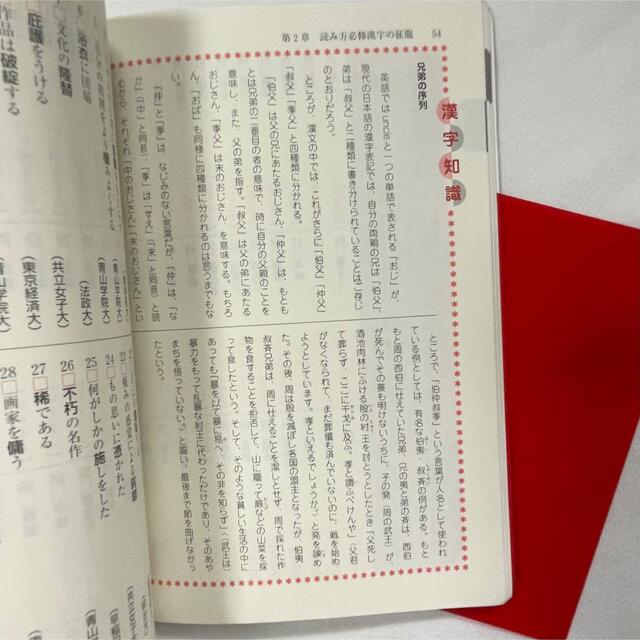 第2章 読み方必修漢字の征服 54
漢字知識
兄弟の序列
英語では uncle と一つの単語で表される「おじ」が、
現代の日本語の漢字表記では、自分の両親の兄は「伯父」、
弟は「叔父」と二種類に書き分けられていることはご存じ
のとおりだろう。
ところが、漢文の中では、これがさらに「伯父」「仲父」
「叔父」「季父」と四種類に分かれる。
「伯父」は父の兄にあたるおじさん、「仲父」は、もとも
とは兄弟の二番目の者の意味で、時に自分の父親のことを
意味し、また、父の弟を指す。「叔父」は父の弟にあたる
おじさん、「季父」は末のおじさん、を意味する。もちろ
ん、「おば」も同様に四種類に分かれるのは言うまでもな
い。
「仲」と「季」は、なじみのない言葉だが、「仲」は、「な
か」（「中」と同音）、「季」は「すえ」（「末」と同音）と読
むから、それぞれ「中のおじさん」「末のおじさん」とい
ところで、「伯仲叔季」という言葉が人名として使われ
ている例としては、有名な伯夷、叔斉の例がある。もと
もと周の西伯に仕えていた兄弟、兄の夷と弟の斉は、西伯
が死んでその喪も明けないうちに、子の発（周の武王）が、
酒池肉林にふける殷の紂王を討とうとしたとき「父死し
て葬らず、ここに干戈に及ぶ。孝と謂ふべけんや」（父君
がなくなられて、まだ葬儀も済んでいないのに、戦を始め
ようとしています。孝といえるでしょうか。）と発を諫め
た。その後、周は殷を滅ぼし各国の盟主となったが、伯夷、
叔斉兄弟は、周に仕えることを潔しとせず、周で採れた作
物を食することを拒否して、山に籠って蕨などの山菜を採
って食したという。そして、そのような貧しい生活の中に
あっても「暴を以て暴に易へ、その非を知らず」（武王は
暴力をもって乱暴な紂王に代わっただけであり、そのあや
まちを悟っていない。）と謳い、最後まで節を曲げなかっ
たという。
庇護をうける
文化の隆替
作品は破綻する
（法政大）
（共立女子大）
（東京経済大）
（青山学院大）
24 もの思いに憑かれた
25 何がしかの施しをした
26 不朽の名作
27 稀である
28 画家を傭う